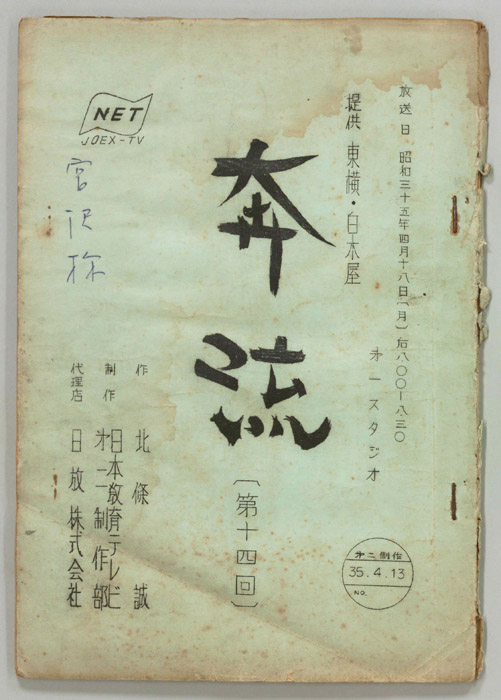 放送日 昭和三十五年四月十八日(月)后八〇〇-八三〇
才一スタジオ
提供 東横・白木屋
奔流
〔第十四回〕
作 北條誠
制作 日本教育テレビ
才二制作部
代理店 日放株式会社
NET
JOEX-TV
宮沢様
才二制作
35.4.13
NO.